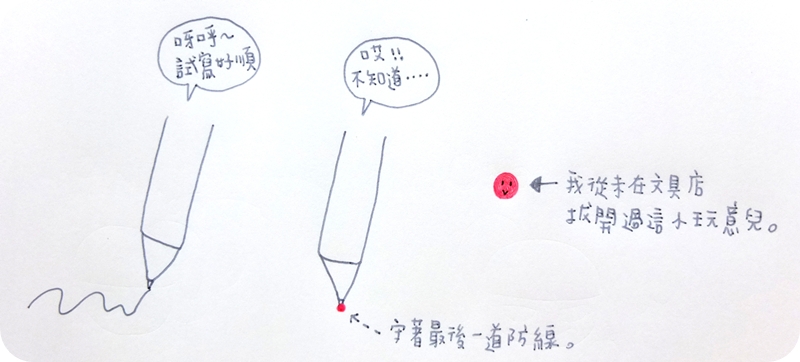 呀呼~
試寫好順
哎!!
不知道····
我從未在文具店
拔開過這小玩意兒。
守著最後一道防線。